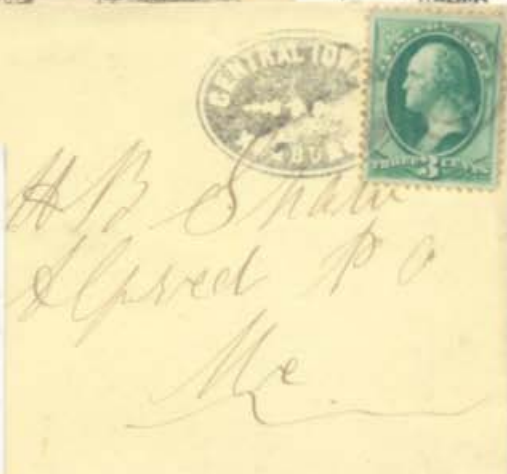 CENTRAL IOW
U.S. POSTAGE
THREE 3 CENTS
H B Shaw
Alfred P O
Me